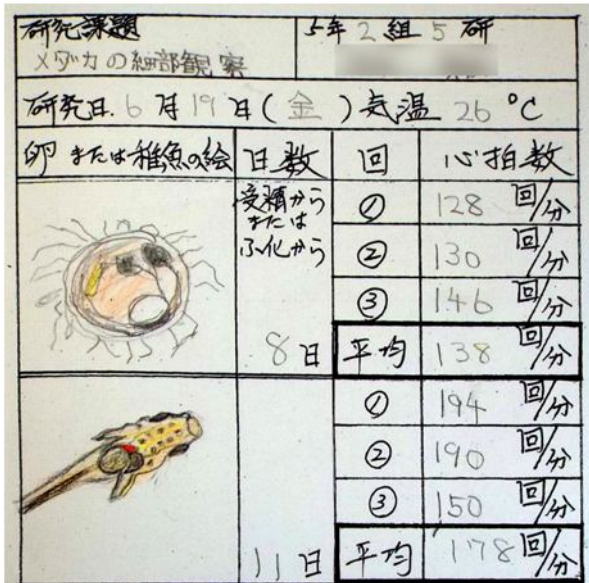 研究課題
メダカの細部観察
5年2組5研
研究日.6月19日(金)気温26℃
卵または稚魚の絵 日数 回 心拍数
受精から
または
ふ化から
8日
① 128回/分
② 130回/分
③ 146回/分
平均 138回/分
11日
① 194回/分
② 190回/分
③ 150回/分
平均 178回/分